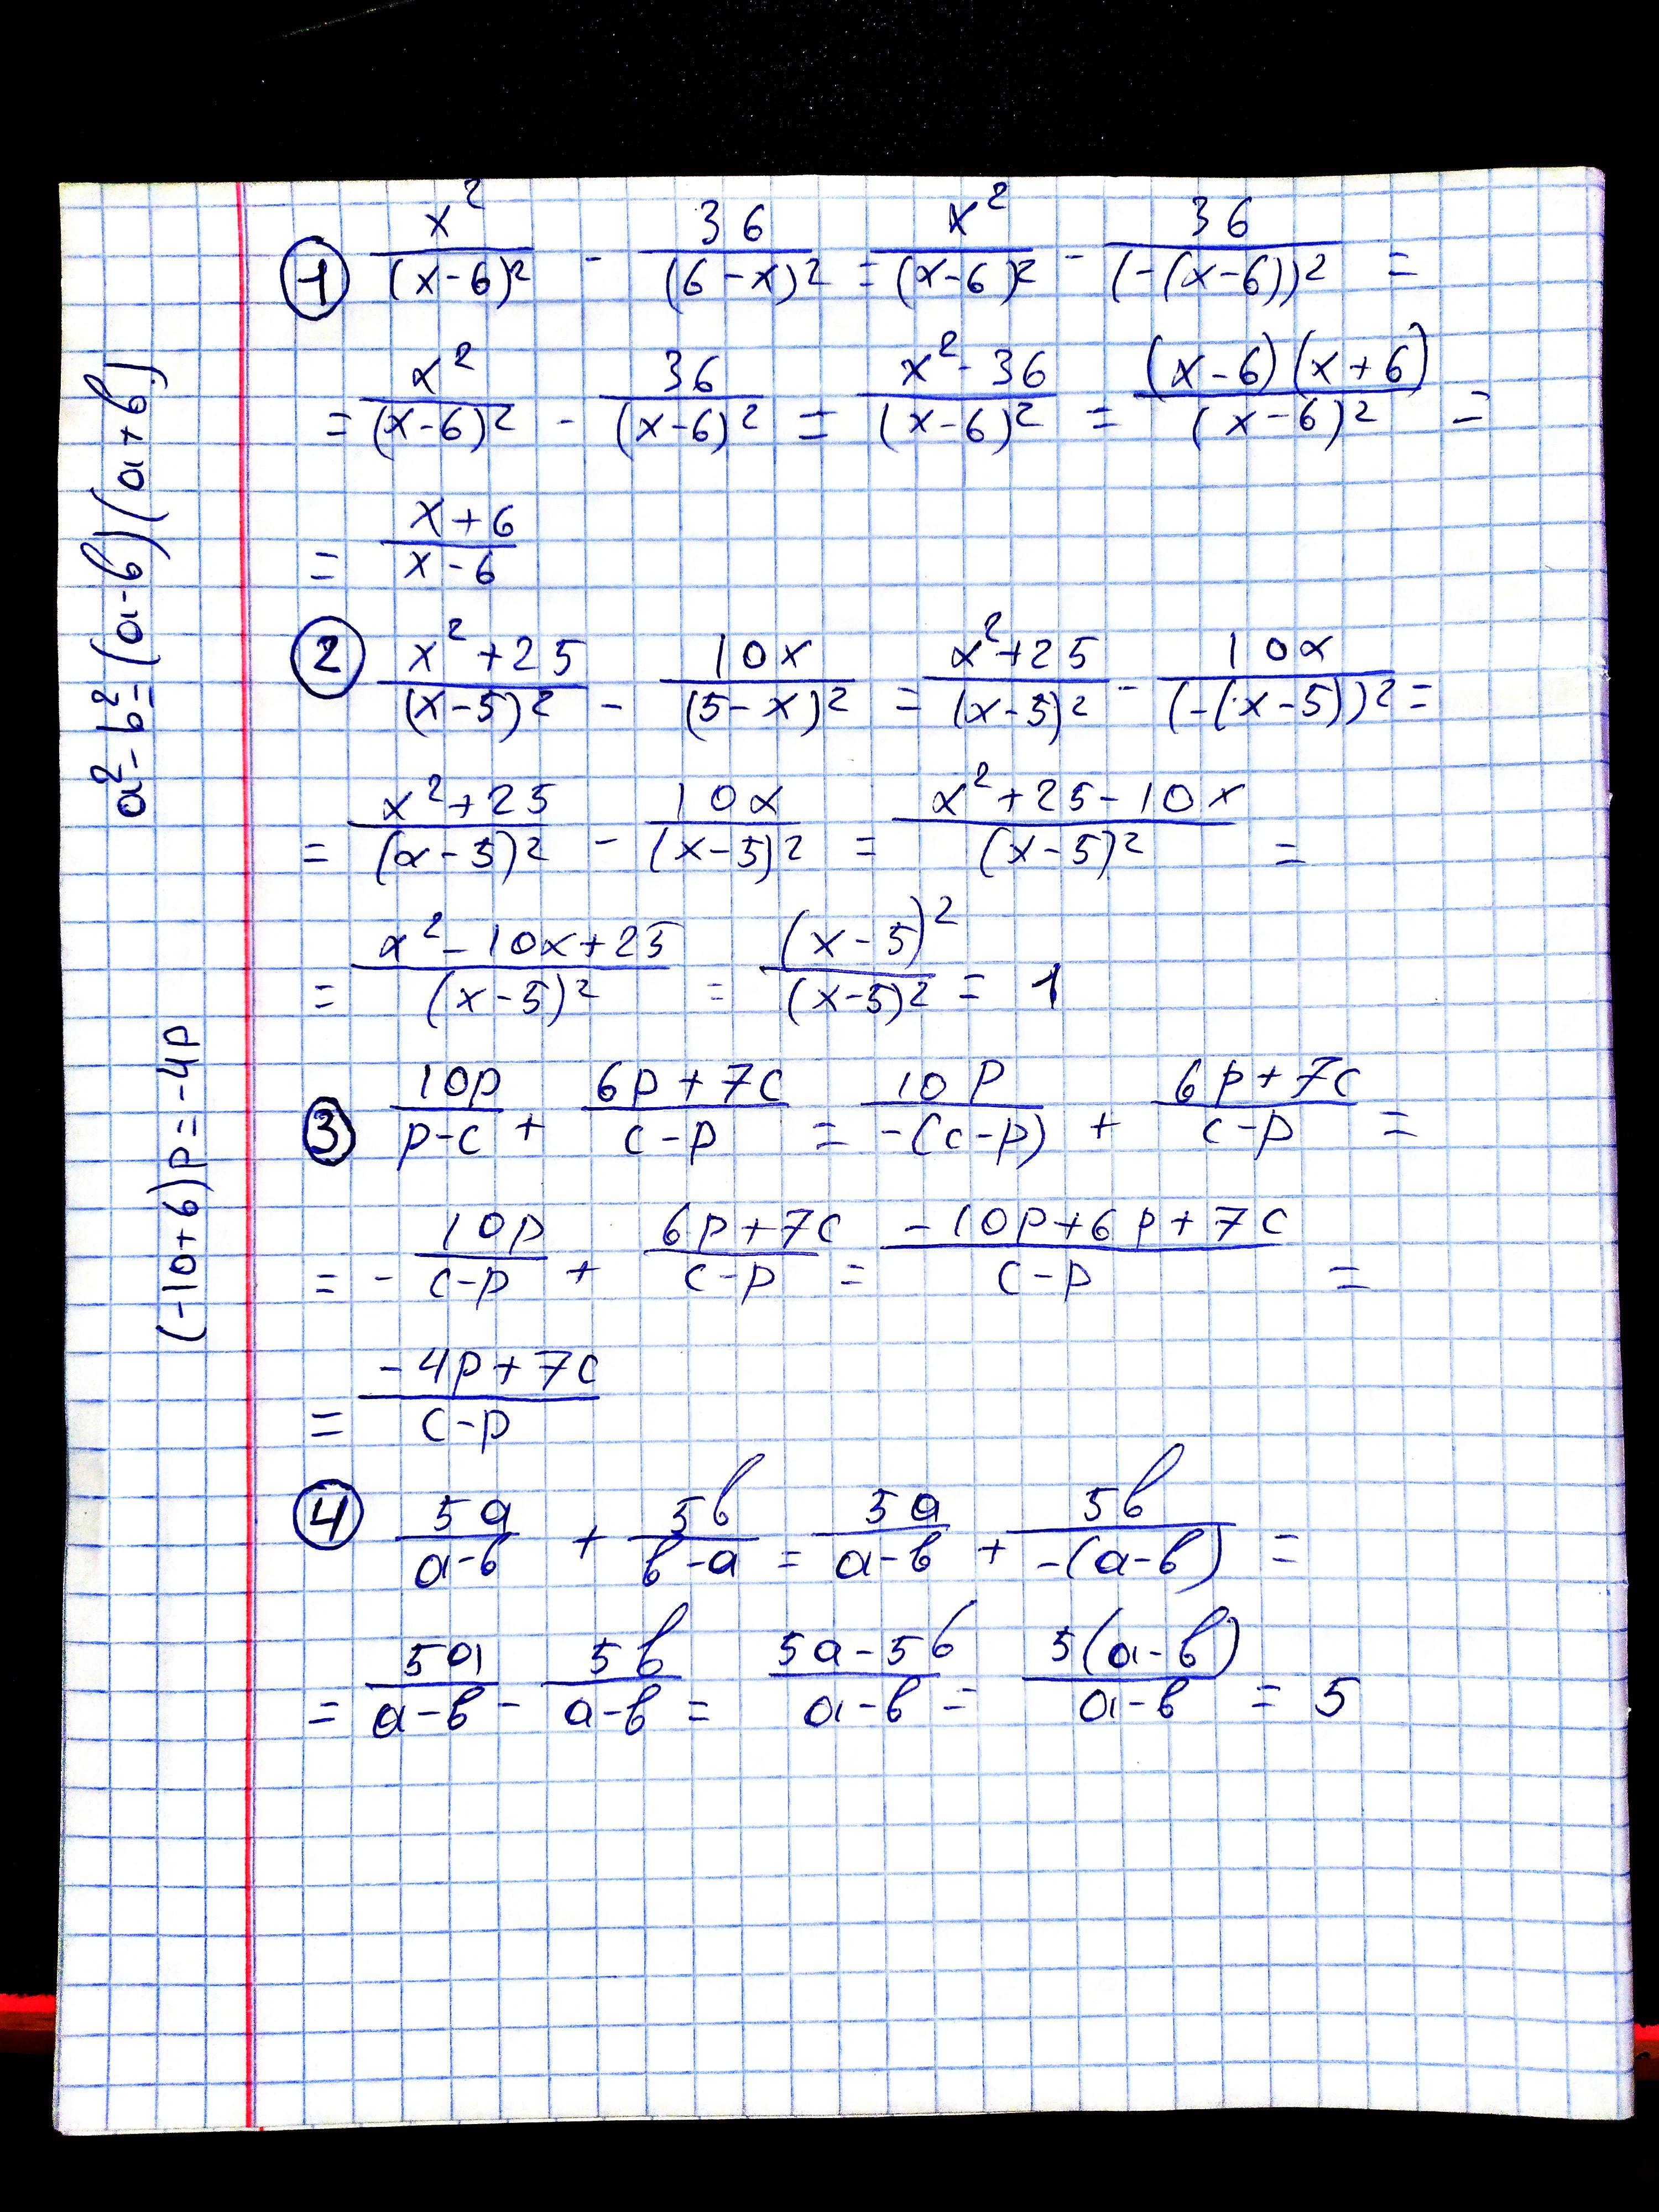 ① x²/(x-6)² - 36/(6-x)² = x²/(x-6)² - 36/(-(x-6))² =
= x²/(x-6)² - 36/(x-6)² = (x²-36)/(x-6)² = (x-6)(x+6)/(x-6)² =
= (x+6)/(x-6)
② (x²+25)/(x-5)² - 10x/(5-x)² = (x²+25)/(x-5)² - 10x/(-(x-5))² =
= (x²+25)/(x-5)² - 10x/(x-5)² = (x²+25-10x)/(x-5)² =
= (x²-10x+25)/(x-5)² = (x-5)²/(x-5)² = 1
③ 10p/(p-c) + (6p+7c)/(c-p) = 10p/(-(c-p)) + (6p+7c)/(c-p) =
= - 10p/(c-p) + (6p+7c)/(c-p) = (-10p+6p+7c)/(c-p) =
= (-4p+7c)/(c-p)
④ 5a/(a-b) + 5b/(b-a) = 5a/(a-b) + 5b/(-(a-b)) =
= 5a/(a-b) - 5b/(a-b) = (5a-5b)/(a-b) = 5(a-b)/(a-b) = 5
a²-b²=(a-b)(a+b)
(-10+6)p=-4p